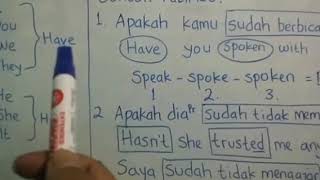 You
We
They
Have
He
She
It
1. Apakah kamu sudah berbica
Have you spoken with
Speak - spoke - spoken =
1 2. 3.
2 Apakah dia Pr sudah tidak mem
Hasn't She trusted me any
Saya sudah tidak